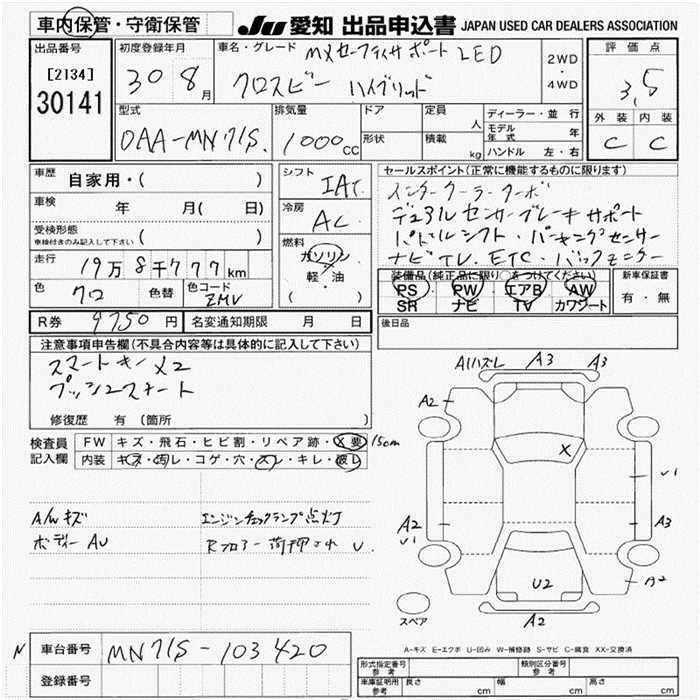 車内保管・守衛保管
JU 愛知 出品申込書 JAPAN USED CAR DEALERS ASSOCIATION
出品番号 [2134] 30141
初度登録年月 30 8月
車名・グレード MXセーフティサポート LED
クロスビー ハイブリッド
2WD・4WD
評価点 3.5
外装 内装
C C
型式 DAA-MN71S.
排気量 1000cc
ドア 定員 人
形状 積載 kg
ディーラー・並行
モデル年式 年
ハンドル 左・右
車歴 自家用・( )
車検 年 月( 日)
受検形態 車検付きのみ記入して下さい ( )
走行 19万8千777km
色 クロ 色替 色コード ZMV
シフト IAT
冷房 AC
燃料 ガソリン 軽・油 ( )
セールスポイント(正常に機能するものに限ります)
インタークーラーターボ
デュアルセンサーブレーキサポート
パドルシフト・パーキングセンサー
ナビTV. ETC・バックモニター
装備品(純正品に限り○をつけてください)
PS PW エアB AW
SR ナビ TV カワシート
新車保証書
有・無
R券 9750円 名変通知期限 月 日
後日品
注意事項申告欄(不具合内容等は具体的に記入して下さい)
スマートキーX2
プッシュスタート
修復歴 有 (箇所 )
検査員記入欄
FW キズ・飛石・ヒビ割・リペア跡・X要 15cm
内装 キズ・汚レ・コゲ・穴・スレ・キレ・破レ
A/Wキズ エンジンチェックランプ点灯
ボディーAU Rフロアー荷押され U.
A1ハズレ A3 A3
A2
X
U1
A2 U1 A3
U2 A2
スペア
A2
A-キズ E-エクボ U-凹み W-補修跡 S-サビ C-腐食 XX-交換済
N 車台番号 MN71S-103420
登録番号
形式指定番号 参考 類別区分番号 参考
車庫証明用 参考 長さ cm 幅 cm 高さ cm